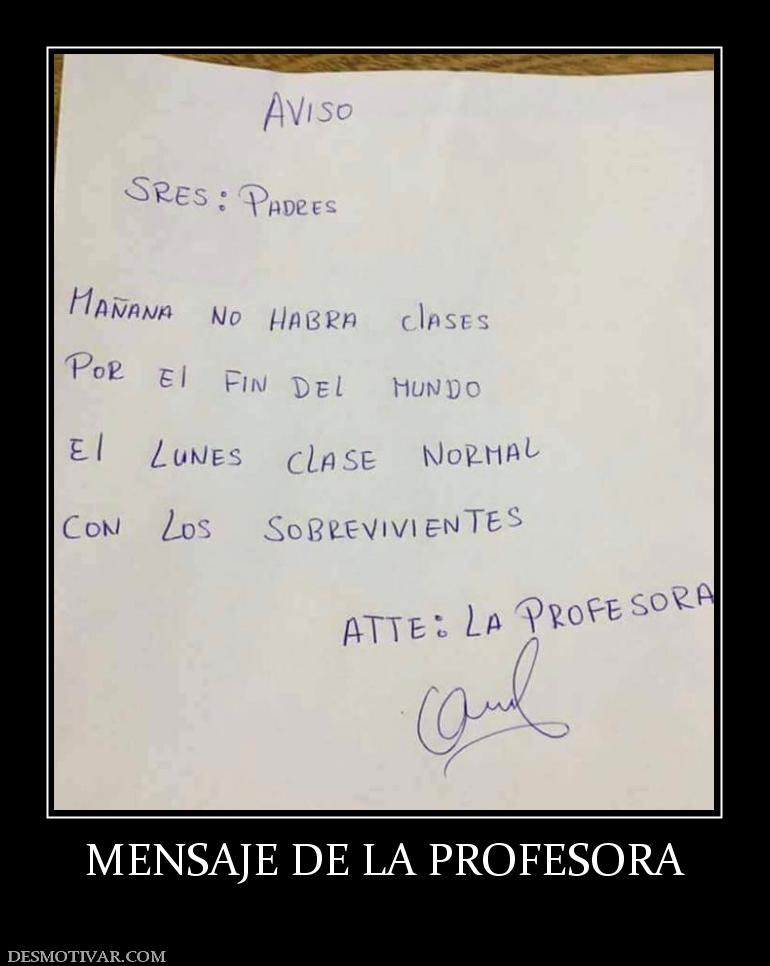 AVISO
SRES: PADRES
MAÑANA NO HABRA clASES
POR El FIN DEL MUNDO
El LUNES CLASE NORMAL
CON LOS SOBREVIVIENTES
ATTE: LA PROFESORA
MENSAJE DE LA PROFESORA
DESMOTIVAR.COM